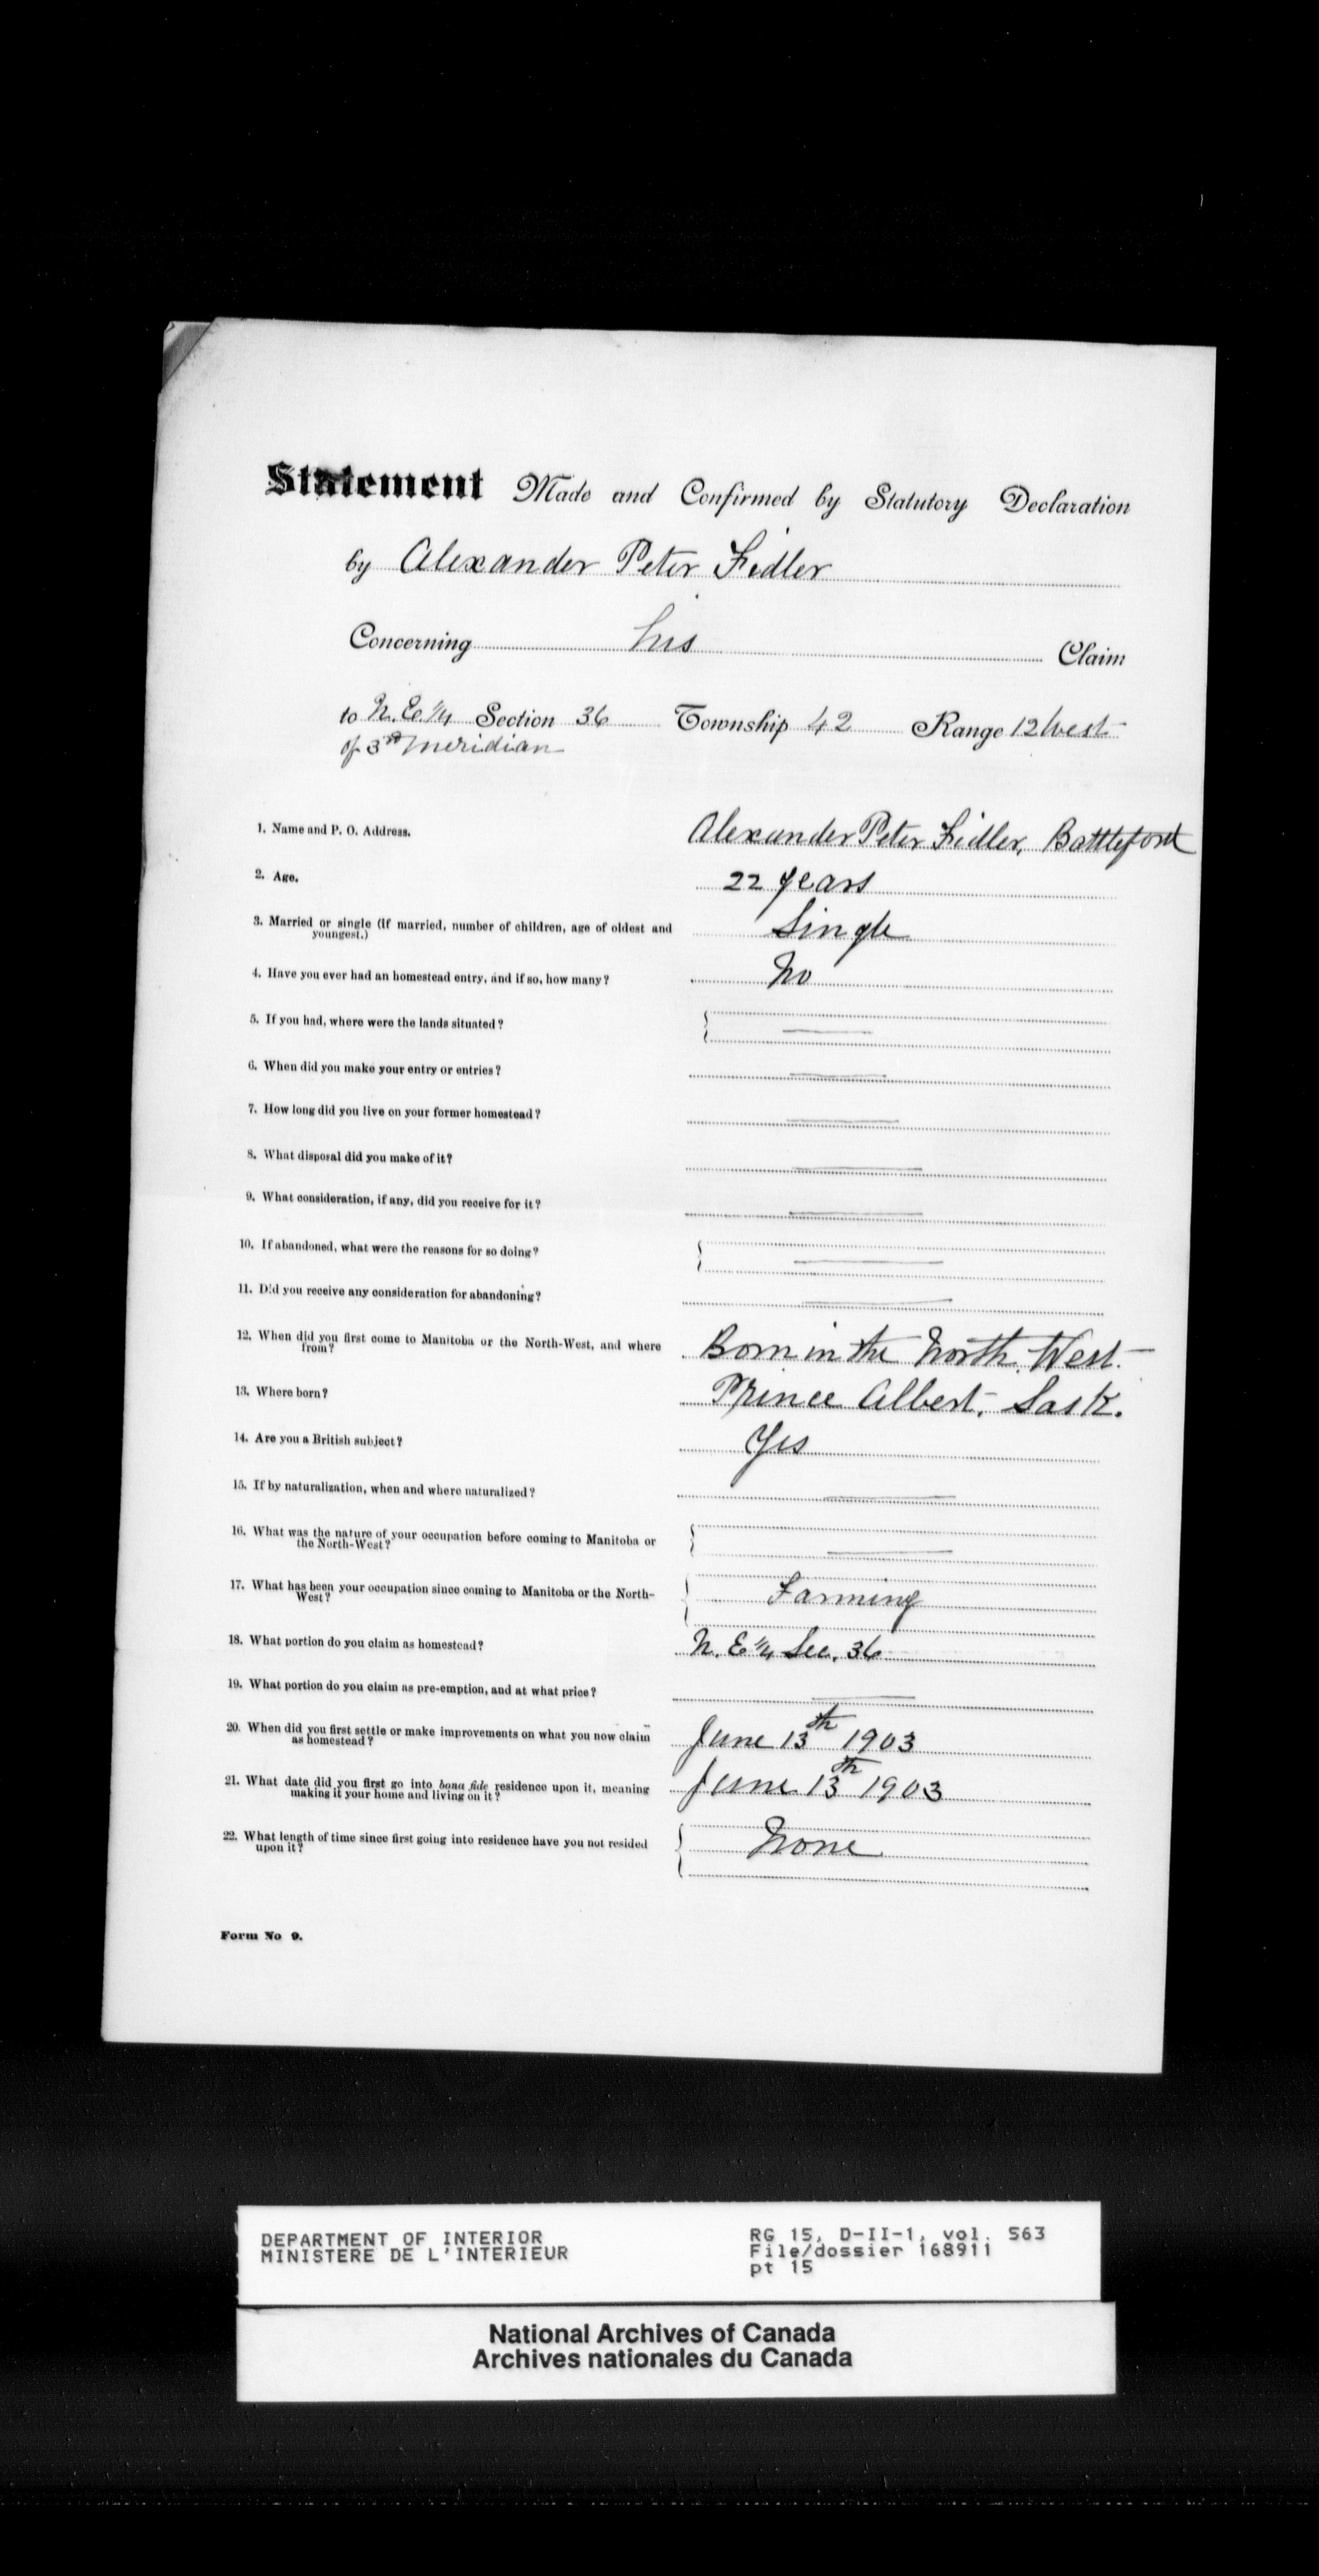 Statement Made and Confirmed by Statutory Declaration
by Alexander Peter Fidler
Concerning his Claim
to N.E. 1/4 Section 36 Township 42 Range 12 West
of 3rd Meridian
1. Name and P. O. Address. Alexander Peter Fidler, Battleford
2. Age. 22 years
3. Married or single (If married, number of children, age of oldest and
youngest.) Single
4. Have you ever had an homestead entry, and if so, how many? No
5. If you had, where were the lands situated?
6. When did you make your entry or entries?
7. How long did you live on your former homestead?
8. What disposal did you make of it?
9. What consideration, if any, did you receive for it?
10. If abandoned, what were the reasons for so doing?
11. Did you receive any consideration for abandoning?
12. When did you first come to Manitoba or the North-West, and where
from? Born in the North West.
13. Where born? Prince Albert, Sask.
14. Are you a British subject? Yes
15. If by naturalization, when and where naturalized?
16. What was the nature of your occupation before coming to Manitoba or
the North-West?
17. What has been your occupation since coming to Manitoba or the North-
West? Farming
18. What portion do you claim as homestead? N. E 1/4 Sec. 36
19. What portion do you claim as pre-emption, and at what price?
20. When did you first settle or make improvements on what you now claim
as homestead? June 13th 1903
21. What date did you first go into bona fide residence upon it, meaning
making it your home and living on it? June 13th 1903
22. What length of time since first going into residence have you not resided
upon it? None
Form No 9.
DEPARTMENT OF INTERIOR
MINISTERE DE L'INTERIEUR
RG 15, D-II-1, vol. 563
File/dossier 168911
pt 15
National Archives of Canada
Archives nationales du Canada